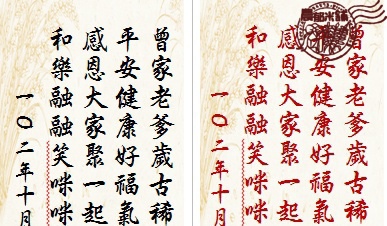 曾家老爹歲古稀
平安健康好福氣
感恩大家聚一起
和樂融融笑咪咪
一〇二年十月
曾家老爹歲古稀
安健康好福氣
感恩大家聚一起
和樂融融笑咪咪
一〇二年十月